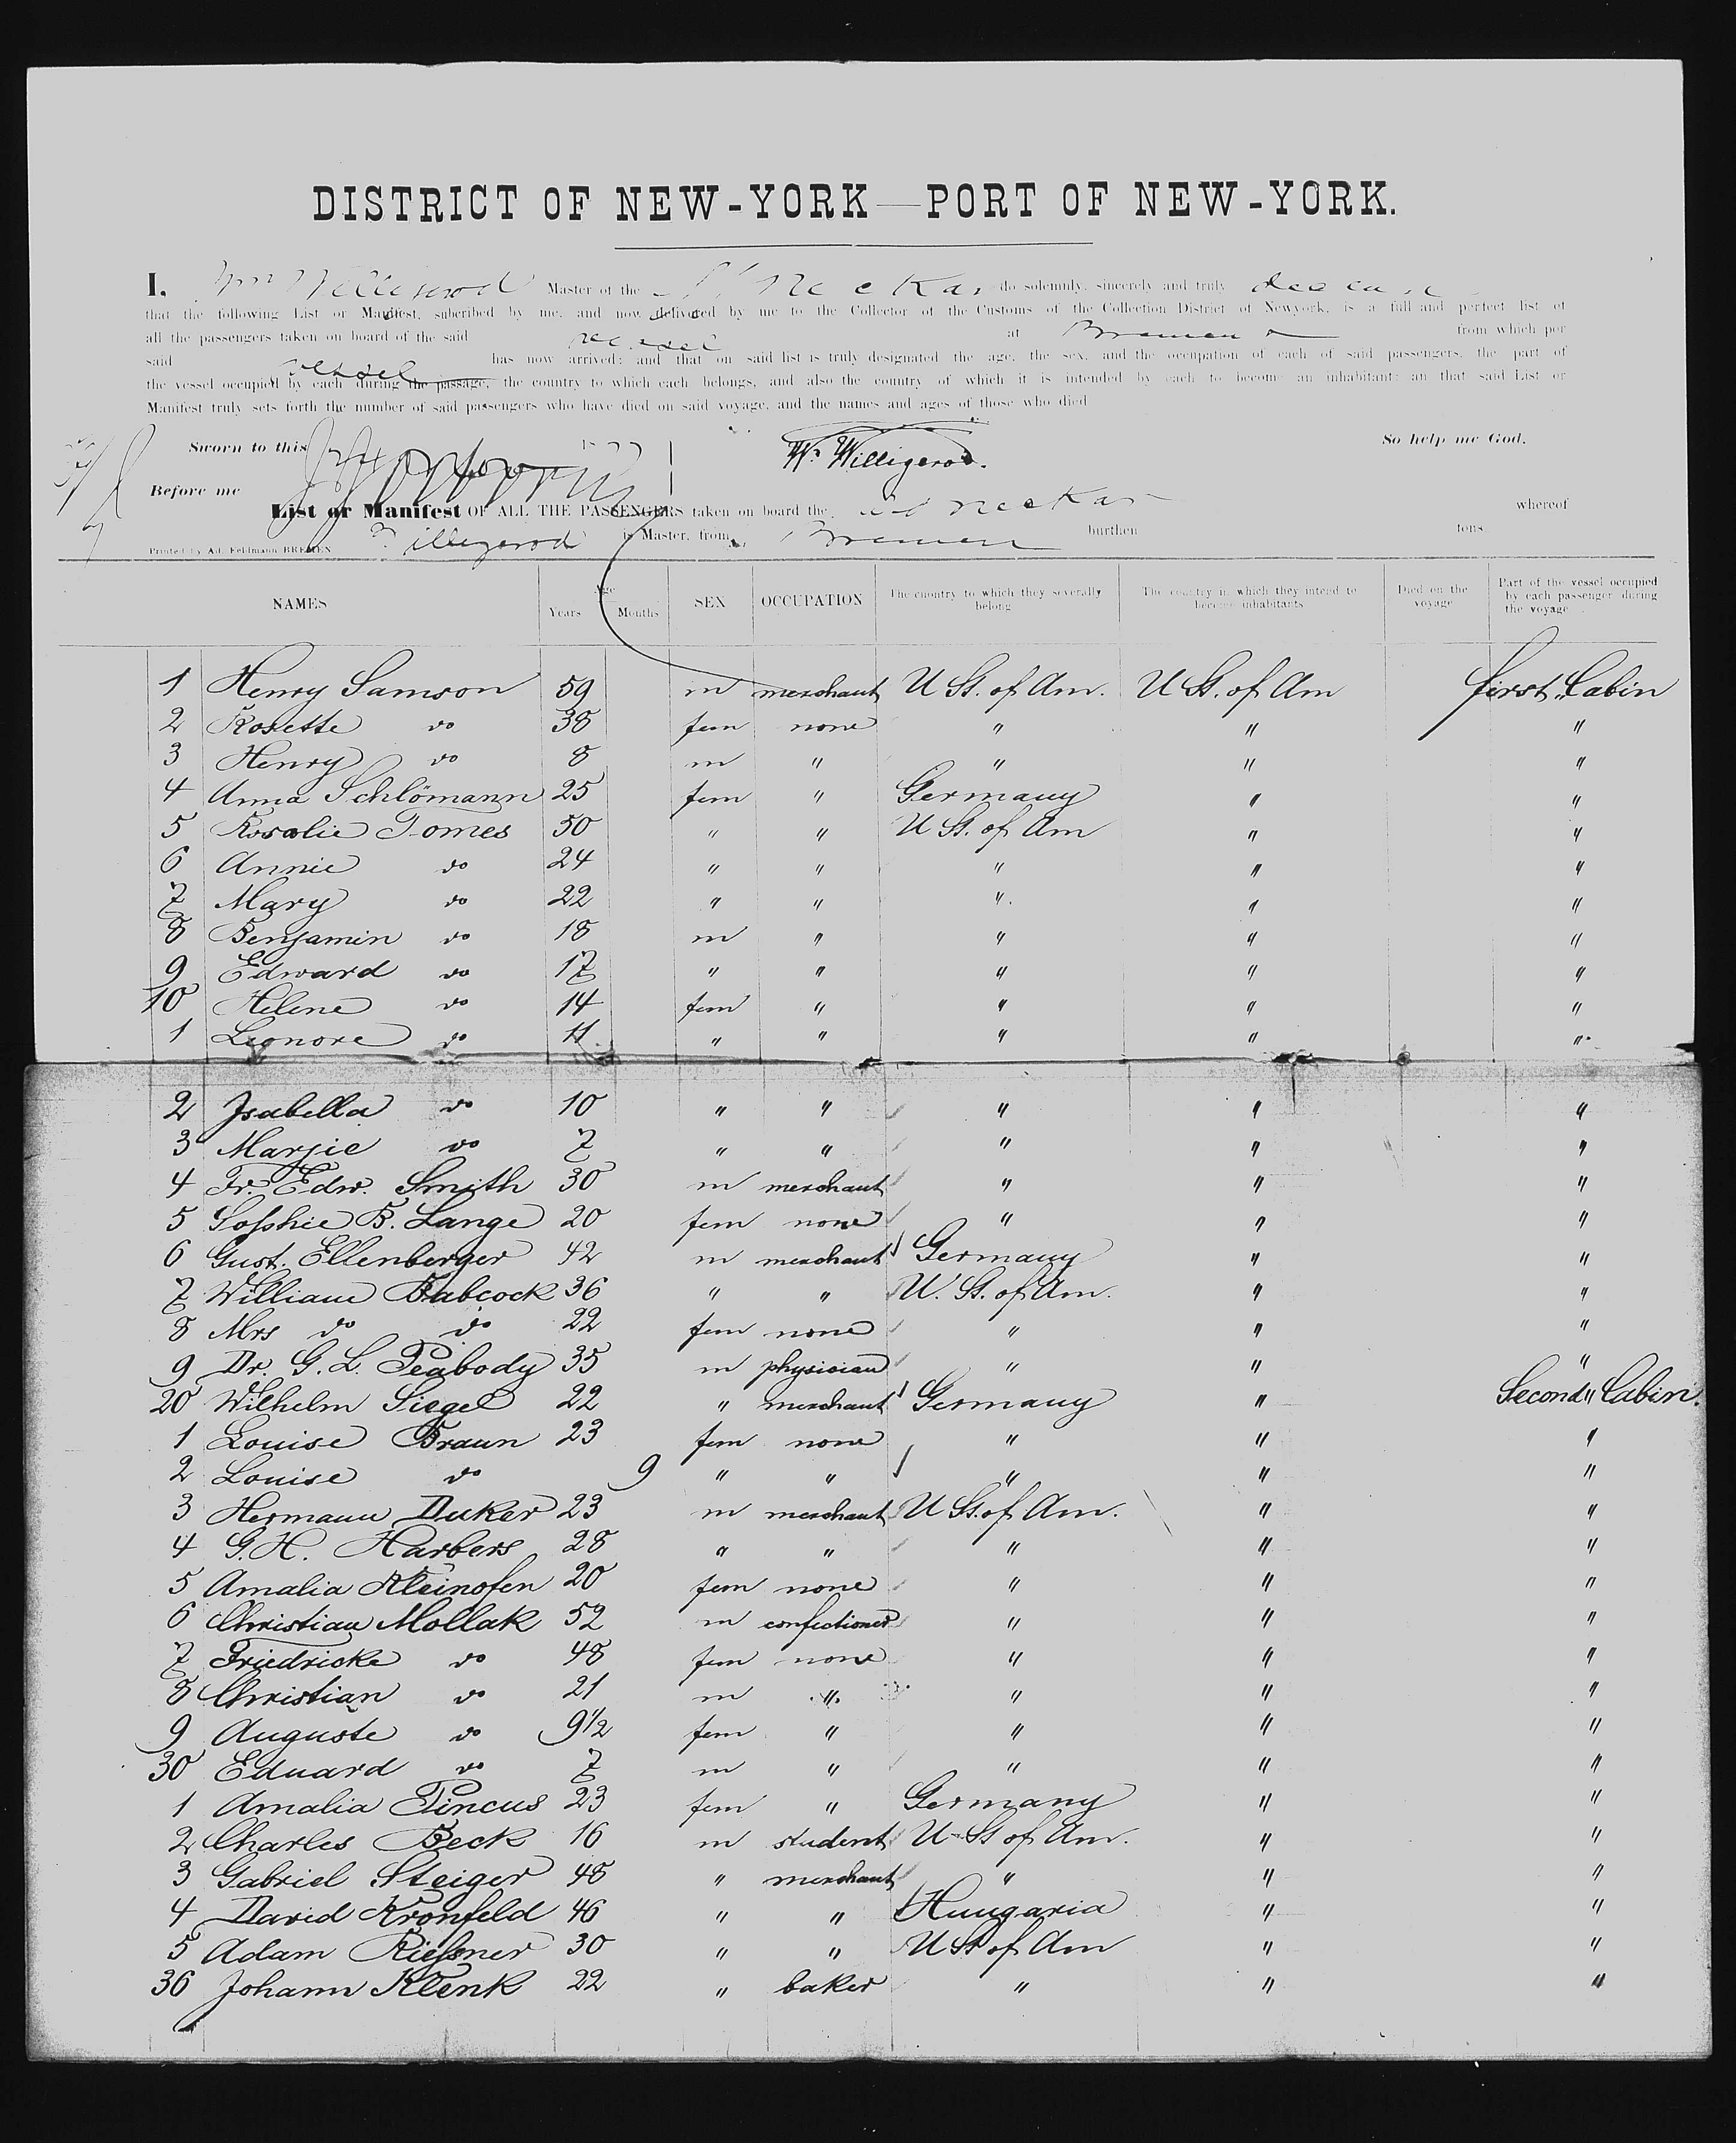 DISTRICT OF NEW-YORK—PORT OF NEW-YORK.
I, Wm Willigerod Master of the SS Neckar do solemnly, sincerely and truly declare
that the following List or Manifest, subcribed by me, and now delivered by me to the Collector of the Customs of the Collection District of Newyork, is a full and perfect list of
all the passengers taken on board of the said vessel at Bremen from which por
said vessel has now arrived; and that on said list is truly designated the age, the sex, and the occupation of each of said passengers, the part of
the vessel occupied by each during the passage, the country to which each belongs, and also the country of which it is intended by each to become an inhabitant; an that said List or
Manifest truly sets forth the number of said passengers who have died on said voyage, and the names and ages of those who died
Sworn to this W. Willigerod. So help me God.
Before me
List or Manifest OF ALL THE PASSENGERS taken on board the SS Neckar whereof
Willigerod is Master, from Bremen burthen tons
Printed by Ad. Feldmann BREMEN
NAMES Age Years Months SEX OCCUPATION The country to which they severally belong The country in which they intend to become inhabitants Died on the voyage Part of the vessel occupied by each passenger during the voyage
1 Henry Samson 59 m merchant U St. of Am. U St. of Am first Cabin
2 Rosette do 38 fem none " " "
3 Henry do 8 m " " " "
4 Anna Schlömann 25 fem " Germany " "
5 Rosalie Tomes 50 " " U St. of Am " "
6 Annie do 24 " " " " "
7 Mary do 22 " " " " "
8 Benjamin do 18 m " " " "
9 Edward do 17 " " " " "
10 Helene do 14 fem " " " "
1 Leonore do 11 " " " " "
2 Isabella do 10 " " " " "
3 Marjie do 7 " " " " "
4 Fr. Edw. Smith 30 m merchant " " "
5 Sophie B. Lange 20 fem none " " "
6 Gust. Ellenberger 42 m merchant Germany " "
7 William Babcock 36 " " U. St. of Am. " "
8 Mrs do do 22 fem none " " "
9 Dr. G. L. Peabody 35 m physician " " "
20 Wilhelm Siegel 22 " merchant Germany " Second Cabin.
1 Louise Braun 23 fem none " " "
2 Louise do 9 " " " " "
3 Hermann Duker 23 m merchant U St. of Am. " "
4 G. H. Harbers 28 " " " " "
5 Amalia Kleinofen 20 fem none " " "
6 Christian Mollak 52 m confectioner " " "
7 Friedricke do 48 fem none " " "
8 Christian do 21 m " " " "
9 Auguste do 9½ fem " " " "
30 Eduard do 7 m " " " "
1 Amalia Pincus 23 fem " Germany " "
2 Charles Beck 16 m student U St of Am. " "
3 Gabriel Steiger 48 " merchant " " "
4 David Kronfeld 46 " " Hungaria " "
5 Adam Rießner 30 " " U St of Am " "
36 Johann Klenk 22 " baker " " "